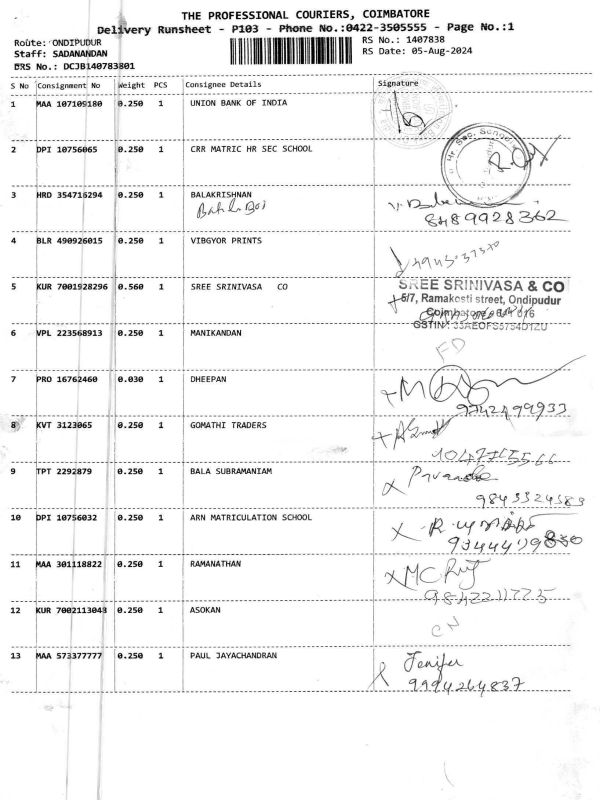 THE PROFESSIONAL COURIERS, COIMBATORE
Delivery Runsheet - P103 - Phone No.:0422-3505555 - Page No.:1
Route: ONDIPUDUR
RS No.: 1407838
Staff: SADANANDAN
RS Date: 05-Aug-2024
DRS No.: DCJB140783801
S No Consignment No Weight PCS Consignee Details Signature
1 MAA 107109180 0.250 1 UNION BANK OF INDIA
2 DPI 10756065 0.250 1 CRR MATRIC HR SEC SCHOOL
Hr Sec. School
3 HRD 354716294 0.250 1 BALAKRISHNAN
8489928362
4 BLR 490926015 0.250 1 VIBGYOR PRINTS
5 KUR 7001928296 0.560 1 SREE SRINIVASA CO
SREE SRINIVASA & CO
6/7, Ramakosti street, Ondipudur
Coimbatore
GSTIN:
6 VPL 223568913 0.250 1 MANIKANDAN
FD
7 PRO 16762460 0.030 1 DHEEPAN
9742499933
8 KVT 3123065 0.250 1 GOMATHI TRADERS
9 TPT 2292879 0.250 1 BALA SUBRAMANIAM
10 DPI 10756032 0.250 1 ARN MATRICULATION SCHOOL
11 MAA 301118822 0.250 1 RAMANATHAN
12 KUR 7002113043 0.250 1 ASOKAN
CN
13 MAA 573377777 0.250 1 PAUL JAYACHANDRAN
Jenifer
9994264837